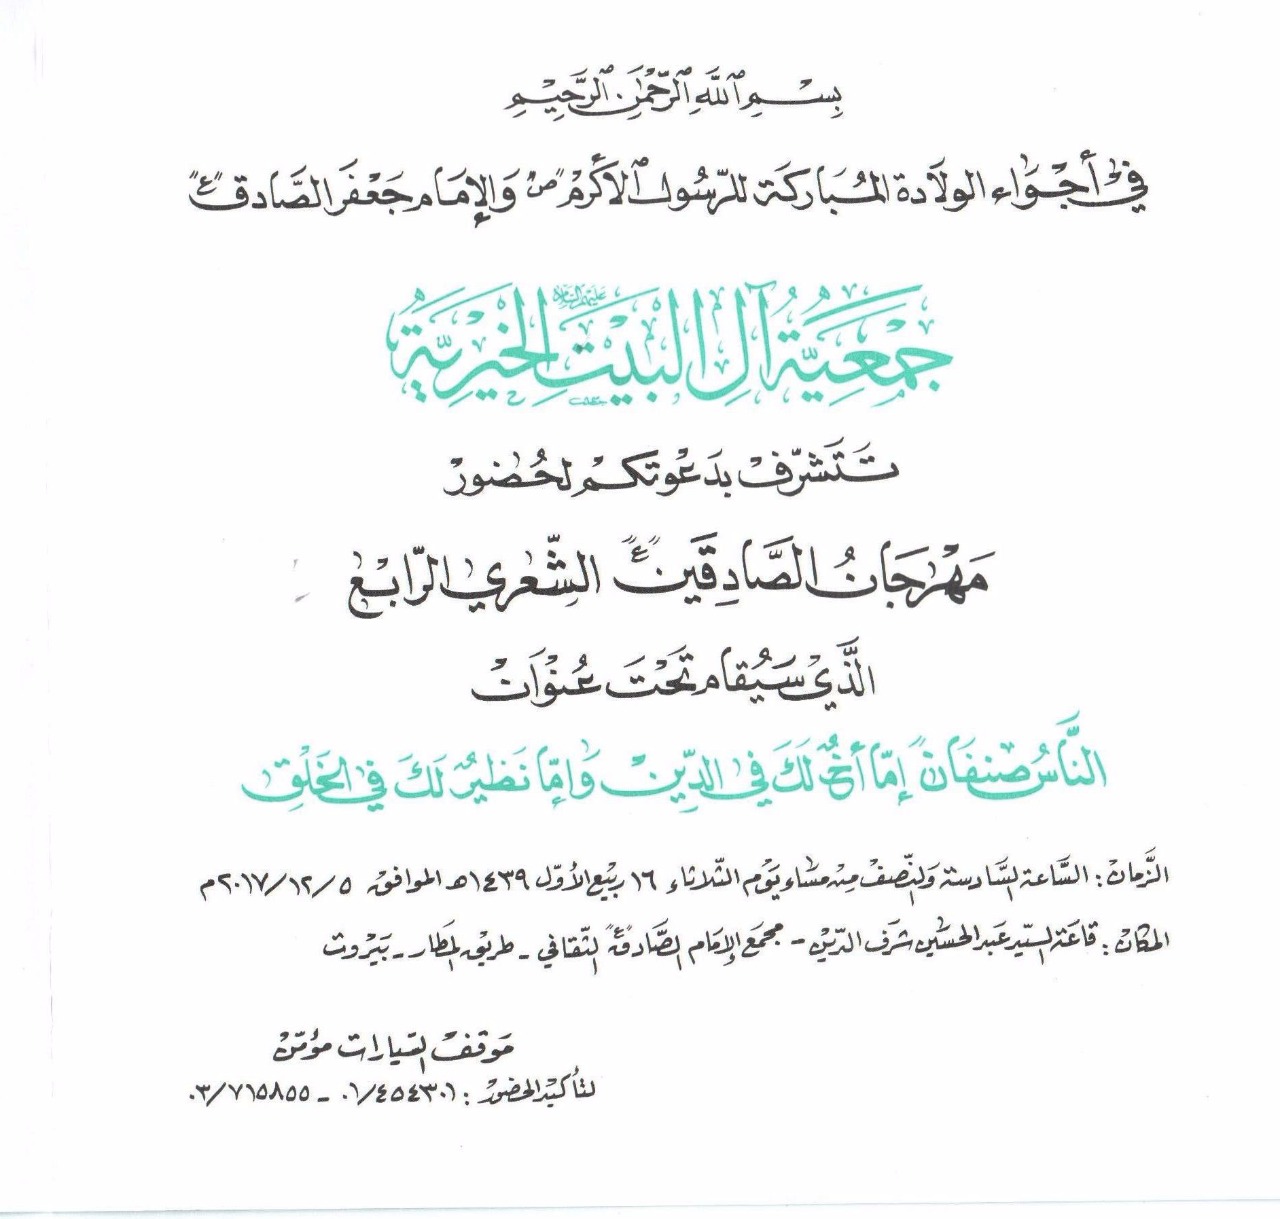 بسم الله الرحمن الرحيم
في أجواء الولادة المباركة للرسول الأكرم "ص" والإمام جعفر الصادق "ع"
جمعية آل البيت عليهم السلام الخيرية
تتشرف بدعوتكم لحضور
مهرجان الصادقين "ع" الشعري الرابع
الذي سيقام تحت عنوان
الناس صنفان إما أخ لك في الدين وإما نظير لك في الخلق
الزمان: الساعة السادسة والنصف من مساء يوم الثلاثاء ١٦ ربيع الأول ١٤٣٩هـ الموافق ٢٠١٧/١٢/٥م
المكان: قاعة السيد عبد الحسين شرف الدين - مجمع الإمام الصادق "ع" الثقافي - طريق المطار - بيروت
موقف السيارات مؤمن
لتأكيد الحضور: ٠١/٤٥٤٣٠١ - ٠٣/٧١٥٨٥٥